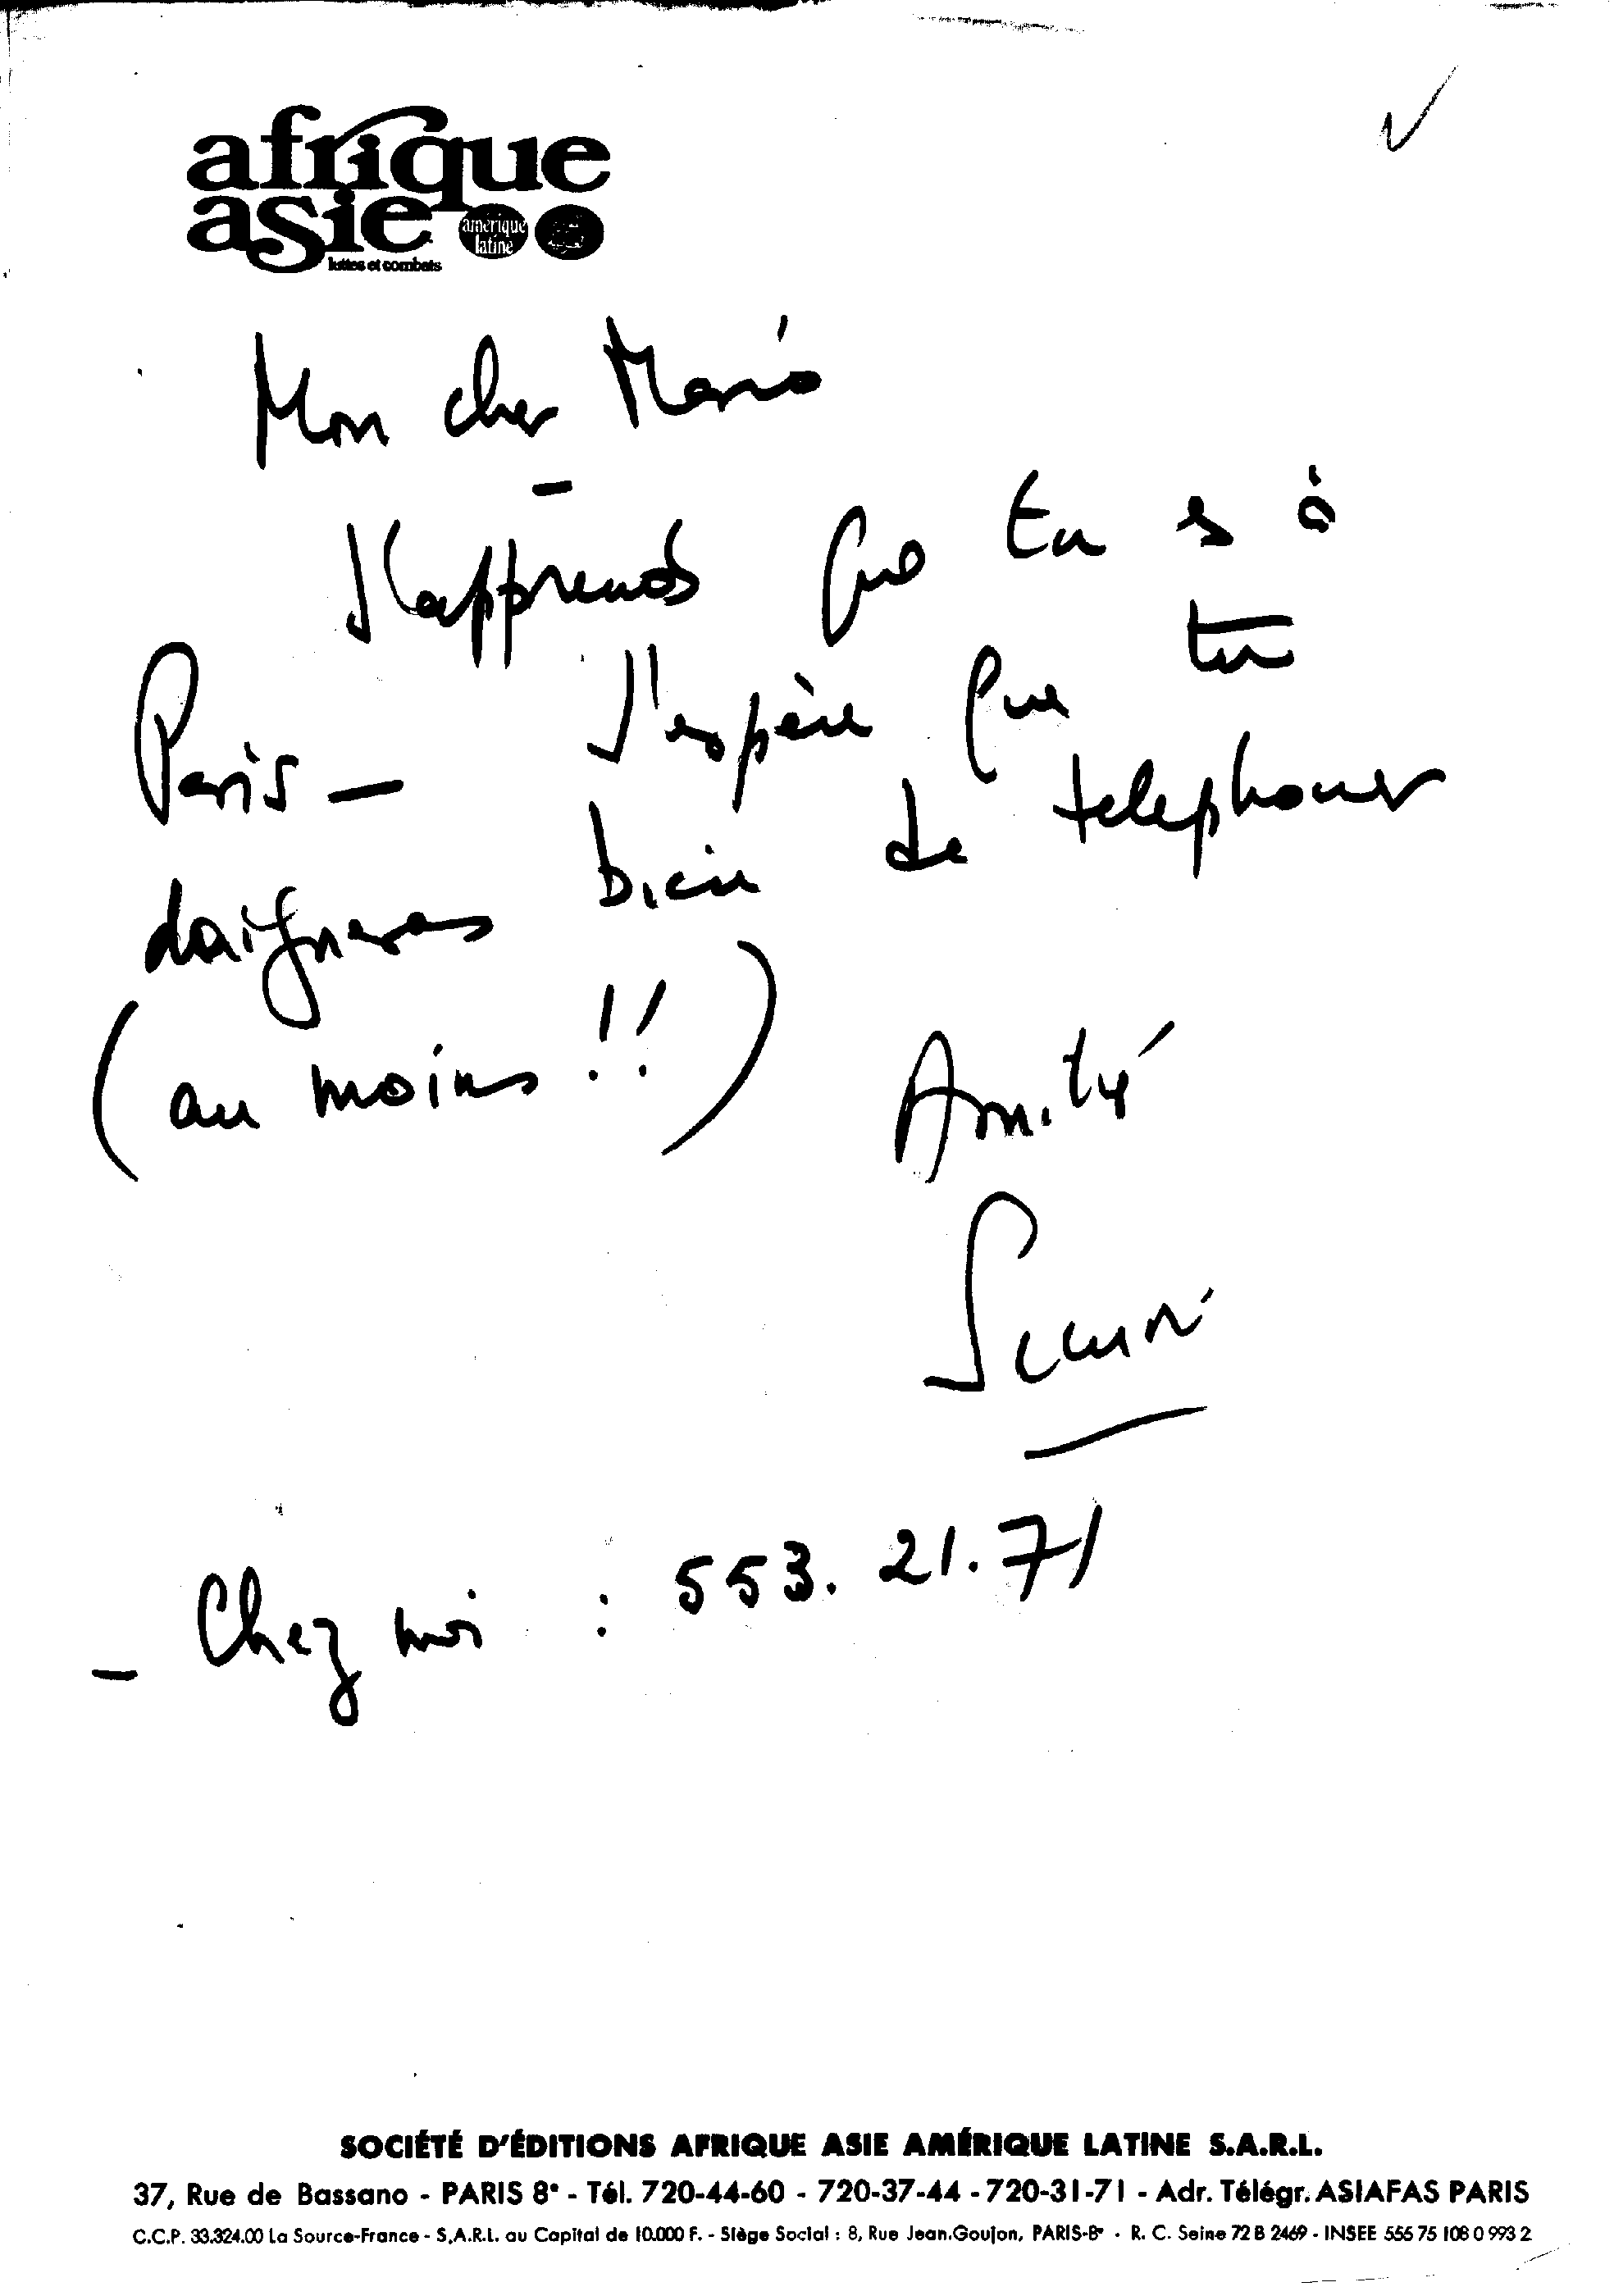 afrique
asie
amérique
latine
luttes et combats
Mon cher Mario
-
J'apprends que tu es à
Paris - J'espère que tu
daigneras bien de telephoner
(au moins !!)
Amitié
- Chez moi : 553. 21. 71
SOCIÉTÉ D'ÉDITIONS AFRIQUE ASIE AMÉRIQUE LATINE S.A.R.L.
37, Rue de Bassano - PARIS 8e - Tél. 720-44-60 - 720-37-44 - 720-31-71 - Adr. Télégr. ASIAFAS PARIS
C.C.P. 33.324.00 La Source-France - S.A.R.L. au Capital de 10.000 F. - Siège Social : 8, Rue Jean-Goujon, PARIS-8e - R. C. Seine 72 B 2469 - INSEE 556 75 108 0 993 2